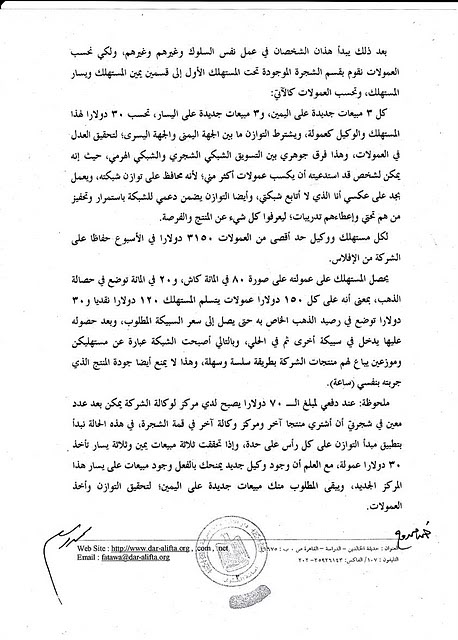 بعد ذلك يبدأ هذان الشخصان في عمل نفس السلوك وغيرهم وغيرهم، ولكي نحسب
العمولات نقوم بقسم الشجرة الموجودة تحت المستهلك الأول إلى قسمين يمين المستهلك ويسار
المستهلك، وتحسب العمولات كالآتي:
كل ٣ مبيعات جديدة على اليمين، و٣ مبيعات جديدة على اليسار، تحسب ٣٠ دولارا لهذا
المستهلك والوكيل كعمولة، ويشترط التوازن ما بين الجهة اليمنى والجهة اليسرى؛ لتحقيق العدل
في العمولات، وهذا فرق جوهري بين التسويق الشبكي الشجري والشبكي الهرمي، حيث إنه
يمكن لشخص قد استدعيته أن يكسب عمولات أكثر مني؛ لأنه محافظ على توازن شبكته، ويعمل
بجد على عكسي أنا الذي لا أتابع شبكتي، وأيضا التوازن يضمن دعمي للشبكة باستمرار وتحفيز
من هم تحتي وإعطاءهم تدريبات؛ ليعرفوا كل شيء عن المنتج والفرصة.
لكل مستهلك ووكيل حد أقصى من العمولات ٣١٥٠ دولارا في الأسبوع حفاظا على
الشركة من الإفلاس.
يحصل المستهلك على عمولته على صورة ٨٠ في المائة كاش، و٢٠ في المائة توضع في حصالة
الذهب، بمعنى أنه على كل ١٥٠ دولارا عمولات يتسلم المستهلك ١٢٠ دولارا نقديا و٣٠
دولارا توضع في رصيد الذهب الخاص به حتى يصل إلى سعر السبيكة المطلوب، وبعد حصوله
عليها يدخل في سبيكة أخرى ثم في الحلي، وبالتالي أصبحت الشبكة عبارة عن مستهليكن
وموزعين يباع لهم منتجات الشركة بطريقة سلسة وسهلة، وهذا لا يمنع أيضا جودة المنتج الذي
جربته بنفسي (ساعة).
ملحوظة: عند دفعي لمبلغ الــ ٧٠ دولارا يصبح لدي مركز لوكالة الشركة يمكن بعد عدد
معين في شجرتي أن أشتري منتجا آخر ومركز وكالة آخر في قمة الشجرة، في هذه الحالة نبدأ
بتطبيق مبدأ التوازن على كل رأس على حدة، وإذا تحققت ثلاثة مبيعات يمين وثلاثة يسار تأخذ
٣٠ دولارا عمولة، مع العلم أن وجود وكيل جديد يمنحك بالفعل وجود مبيعات على يسار هذا
المركز الجديد، ويبقى المطلوب منك مبيعات جديدة على اليمين؛ لتحقيق التوازن وأخذ
العمولات.
عنوان: حديقة الخالدين – الدراسة – القاهرة ص . ب : ١١٦٧٥
Web Site : http://www.dar-alifta.org , .com , .net
التليفون : ١٠٧ / الفاكس: ٢٥٩٢٦١٤٣-٢٠٢
Email : fatawa@dar-alifta.org